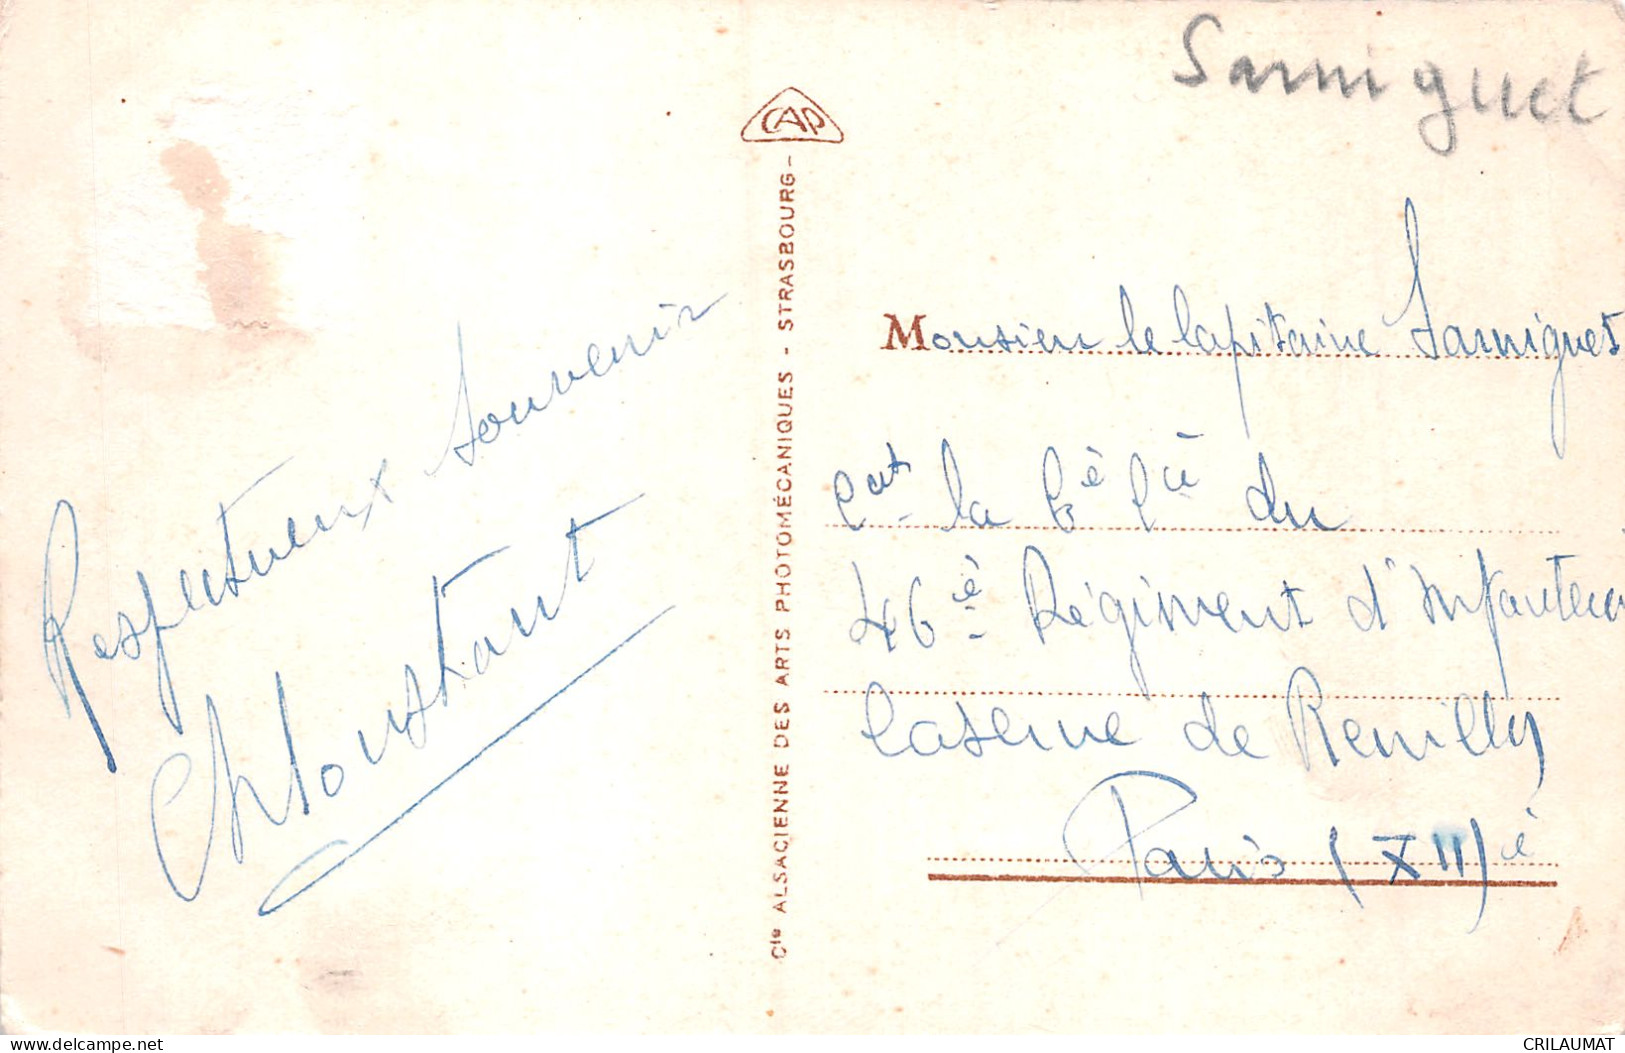 Sarniguet
CAP
Respectueux souvenir
Cie ALSACIENNE DES ARTS PHOTOMÉCANIQUES - STRASBOURG -
Monsieur le Capitaine Sarniguet
Cdt la 6è Cie du
46è Régiment d'Infanterie
Caserne de Reuilly
Paris (XII)è
www.delcampe.net
CRILAUMAT